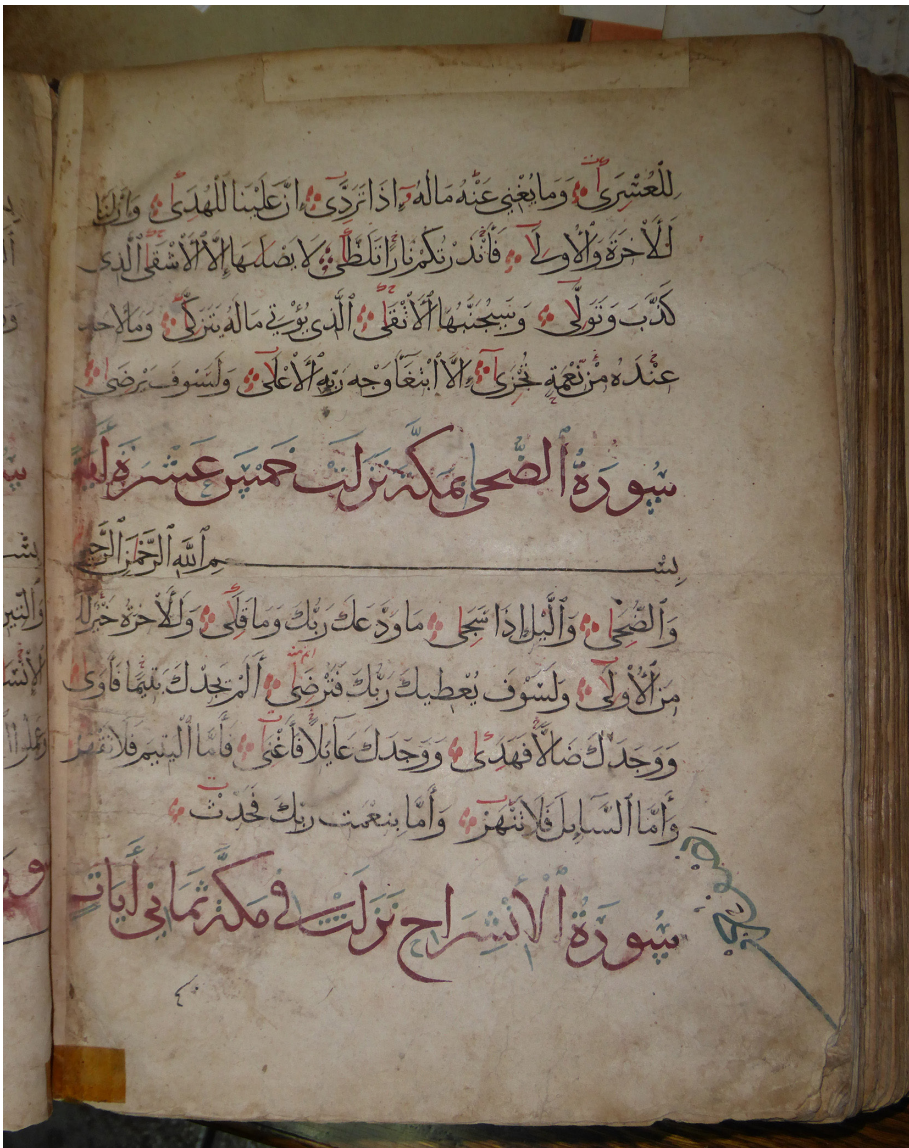 لِلْعُسْرَىٰ وَمَا يُغْنِي عَنْهُ مَالُهُ إِذَا تَرَدَّىٰ إِنَّ عَلَيْنَا لَلْهُدَىٰ وَإِنَّ لَنَا
لَلْآخِرَةَ وَالْأُولَىٰ فَأَنْذَرْتُكُمْ نَارًا تَلَظَّىٰ لَا يَصْلَىٰهَا إِلَّا الْأَشْقَى الَّذِي
كَذَّبَ وَتَوَلَّىٰ وَسَيُجَنَّبُهَا الْأَتْقَى الَّذِي يُؤْتِي مَالَهُ يَتَزَكَّىٰ وَمَا لِأَحَدٍ
عِنْدَهُ مِنْ نِعْمَةٍ تُجْزَىٰ إِلَّا ابْتِغَاءَ وَجْهِ رَبِّهِ الْأَعْلَىٰ وَلَسَوْفَ يَرْضَىٰ
سُورَةُ الضُّحَىٰ بِمَكَّةَ نَزَلَتْ خَمْسَ عَشَرَةَ آيَةً
بِسْمِ اللَّهِ الرَّحْمَٰنِ الرَّحِيمِ
وَالضُّحَىٰ وَاللَّيْلِ إِذَا سَجَىٰ مَا وَدَّعَكَ رَبُّكَ وَمَا قَلَىٰ وَلَلْآخِرَةُ خَيْرٌ لَكَ
مِنَ الْأُولَىٰ وَلَسَوْفَ يُعْطِيكَ رَبُّكَ فَتَرْضَىٰ أَلَمْ يَجِدْكَ يَتِيمًا فَآوَىٰ
وَوَجَدَكَ ضَالًّا فَهَدَىٰ وَوَجَدَكَ عَائِلًا فَأَغْنَىٰ فَأَمَّا الْيَتِيمَ فَلَا تَقْهَرْ
وَأَمَّا السَّائِلَ فَلَا تَنْهَرْ وَأَمَّا بِنِعْمَتِ رَبِّكَ فَحَدِّثْ
سُورَةُ الْاِنْشِرَاحِ نَزَلَتْ فِي مَكَّةَ ثَمَانِي آيَاتٍ